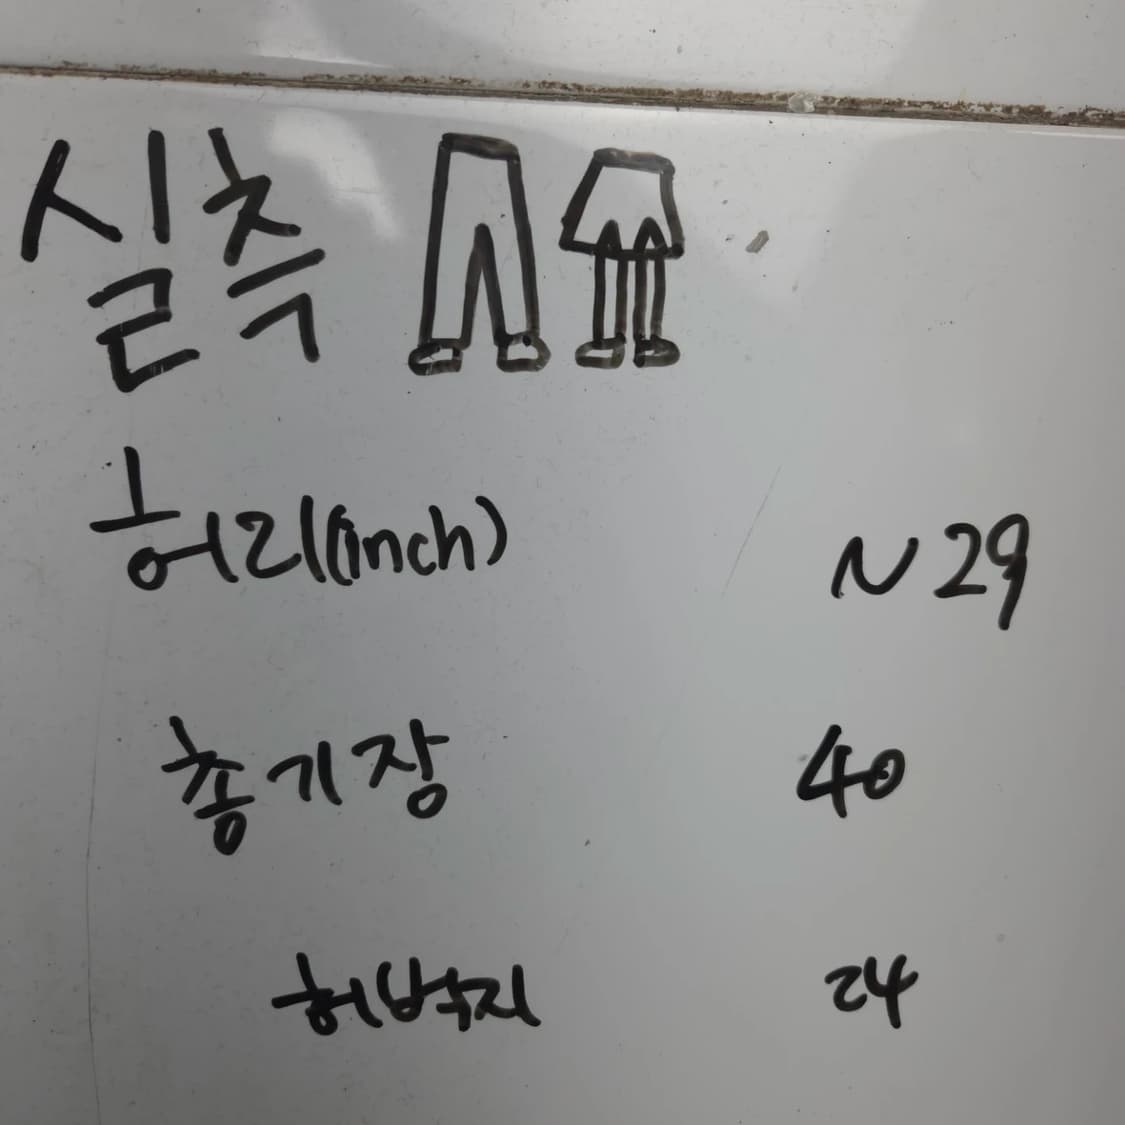 실측
허리(inch) ~29
총기장 40
허벅지 24